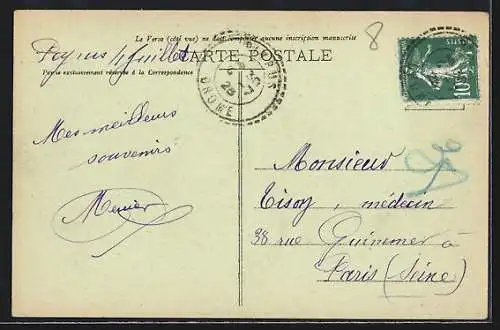 Le Verso (côté vue) ne doit comporter aucune inscription manuscrite
CARTE POSTALE
Peyrus 1 juillet
Partie exclusivement réservée à la Correspondance
PEYRUS
DROME
25
10
8
Mes meilleurs
souvenirs
Menier
Monsieur
Tisoy, médecin
38 rue Guynemer à
Paris (Seine)